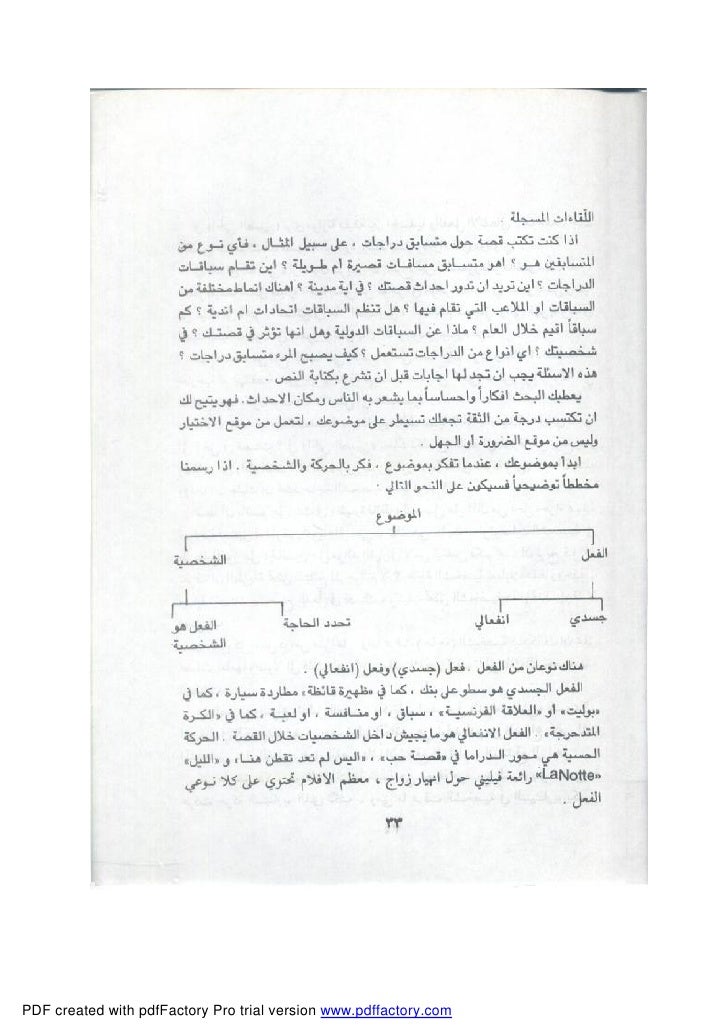 اللّقاءات المسجلة .
اذا كنت تكتب قصة حول متسابق دراجات ، على سبيل المثال ، فأي نوع من
المتسابقين هو ؟ اهو متسابق مسافات قصيرة أم طويلة ؟ اين تقام سباقات
الدراجات ؟ اين تريد ان تدور احداث قصتك ؟ في اية مدينة ؟ أهناك انماط مختلفة من
السباقات او الملاعب التي تقام فيها ؟ هل تنظم السباقات اتحادات ام اندية ؟ كم
سباقاً اقيم خلال العام ؟ ماذا عن السباقات الدولية وهل انها تؤثر في قصتك ؟ في
شخصيتك ؟ اي انواع من الدراجات تستعمل ؟ كيف يصبح المرء متسابق دراجات ؟
هذه الاسئلة يجب ان تجد لها اجابات قبل ان تشرع بكتابة النص .
يعطيك البحث افكاراً واحساساً بما يشعر به الناس ومكان الاحداث. فهو يتيح لك
ان تكتسب درجة من الثقة تجعلك تسيطر على موضوعك ، لتعمل من موقع الاختيار
وليس من موقع الضرورة أو الجهل .
ابدأ بموضوعك ، عندما تفكر بموضوع ، فكر بالحركة والشخصية . اذا رسمنا
مخططاً توضيحياً فسيكون على النحو التالي .
الموضوع
الفعل الشخصية
جسدي انفعالي تحدد الحاجة الفعل هو
الشخصية
هناك نوعان من الفعل . فعل (جسدي) وفعل (انفعالي) .
الفعل الجسدي هو سطو على بنك ، كما في «ظهيرة قائظة» مطاردة سيارة ، كما في
«بوليت» أو «العلاقة الفرنسية» ، سباق ، او منافسة ، او لعبة ، كما في «الكرة
المتدحرجة» . الفعل الانفعالي هو ما يجيش داخل الشخصيات خلال القصة . الحركة
الحسية هي محور الدراما في «قصة حب» ، «اليس لم تعد تقطن هنا» و «الليل»
«LaNotte» رائعة فيليني حول انهيار زواج ، معظم الافلام تحتوي على كلا نوعي
الفعل .
٣٣
PDF created with pdfFactory Pro trial version www.pdffactory.com